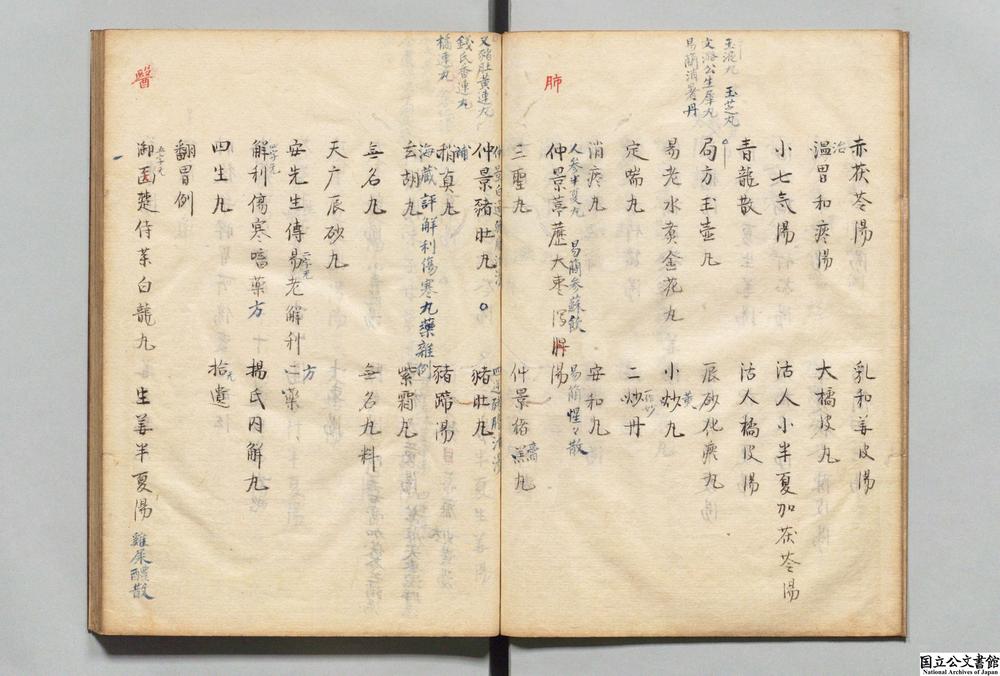 玉液丸 玉芝丸
文潞公生犀丸
易簡消暑丹
肺
赤茯苓湯 乳和姜皮湯
治
温胃和痰湯 大橘皮丸
小七気湯 活人小半夏加茯苓湯
青龍散 活人橘皮湯
局方玉壺丸 辰砂化痰丸
易老水煮金花丸 小黄炒丸
定喘丸 二炒丹
消痰丸 安和丸
人参半夏丸 易簡参蘇飲 易簡惺々散
仲景葶藶大棗瀉脾湯
三聖丸 仲景橘皮丸
又豬肚黄連丸
錢氏香連丸
橘連丸
醫
仲景豬肚丸 豬肚丸
補真丸 豬蹄湯
海蔵評解利傷寒丸藥雜例
玄胡丸 紫霜丸
無名丸 無名丸料
天广辰砂丸
安先生傳易老解利二藥方
解利傷寒嗜藥方 楊氏内解丸
四生丸 拾遺
翻胃例
御医楚侍菜白龍丸 生姜半夏湯 雞屎醴散
国立公文書館
National Archives of Japan